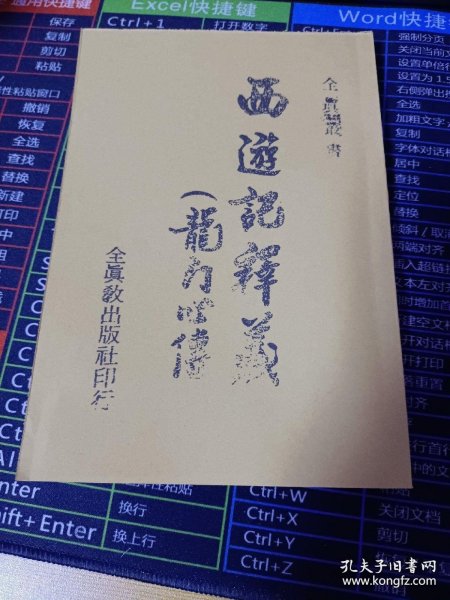 全真叢書
西遊記釋義
（龍門心傳
全眞教出版社印行
通用快捷键
Excel快捷键
Word快捷键
保存
复制
剪切
粘贴
性粘贴窗口
撤销
恢复
全选
查找
替换
新建
打印
Ctrl+1
打开数字
强制分页
关闭当前文
设置单倍行
设置为 1.5
右侧弹出
全选
加粗文字
复制
字体对话框
居中
查找
定位
替换
倾斜 / 取消
两端对齐
插入超链接
文本左对
关闭文档
剪切
Ctrl+W
Ctrl+X
Ctrl+Y
Ctrl+Z
换行
换上行
Shift+Enter
孔夫子旧书网
www.kongfz.com